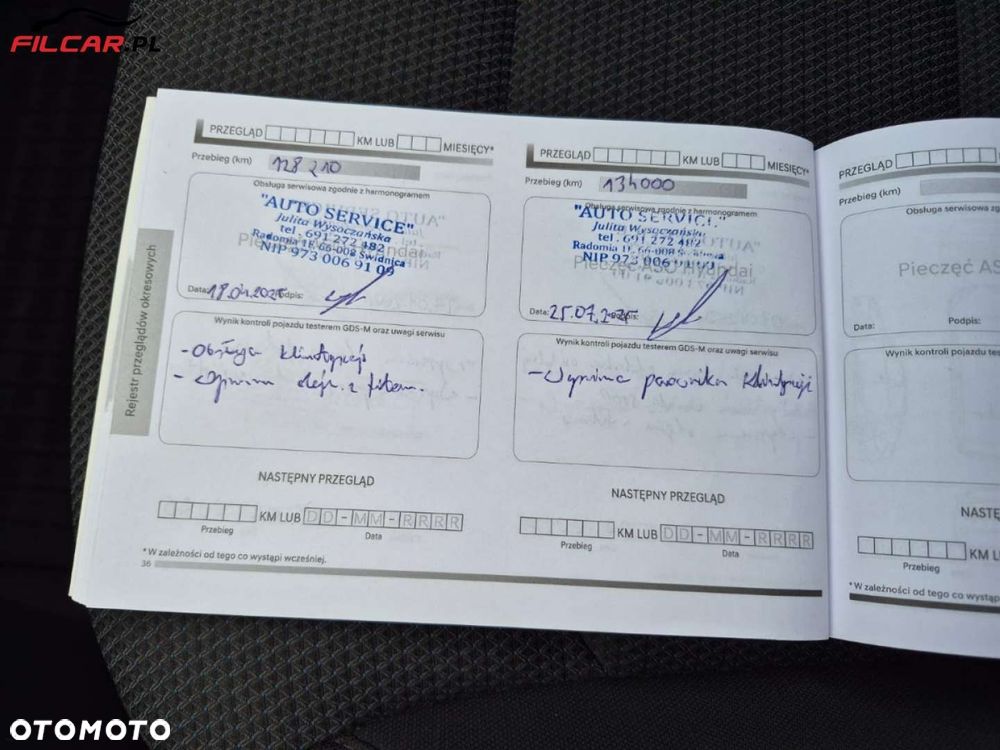 FILCAR.PL
PRZEGLĄD KM LUB MIESIĘCY*
Przebieg (km) 128 210
Obsługa serwisowa zgodnie z harmonogramem
"AUTO SERVICE"
Julita Wysoczańska
tel. 691 272 482
Radomia 1F, 66-008 Świdnica
NIP 973 006 91 09
Data: 19.04.2025 Podpis:
Wynik kontroli pojazdu testerem GDS-M oraz uwagi serwisu
- Obsługa klimatyzacji
- Wymiana oleju z filtrem.
NASTĘPNY PRZEGLĄD
KM LUB DD-MM-RRRR
Przebieg Data
* W zależności od tego co wystąpi wcześniej.
36
Rejestr przeglądów okresowych
PRZEGLĄD KM LUB MIESIĘCY*
Przebieg (km) 134000
Obsługa serwisowa zgodnie z harmonogramem
"AUTO SERVICE"
Julita Wysoczańska
tel. 691 272 482
Radomia 1F, 66-008 Świdnica
NIP 973 006 91 09
Pieczęć ASO Hyundai
Data: 25.07.2025 Podpis:
Wynik kontroli pojazdu testerem GDS-M oraz uwagi serwisu
- Wymiana parownika klimatyzacji
NASTĘPNY PRZEGLĄD
KM LUB DD-MM-RRRR
Przebieg Data
PRZEGLĄD
Przebieg (km)
Obsługa serwisowa zgod
Pieczęć AS
Data: Podpis:
Wynik kontroli pojazdu tes
NASTĘ
KM L
Przebieg
* W zależności od tego co wystąp
OTOMOTO